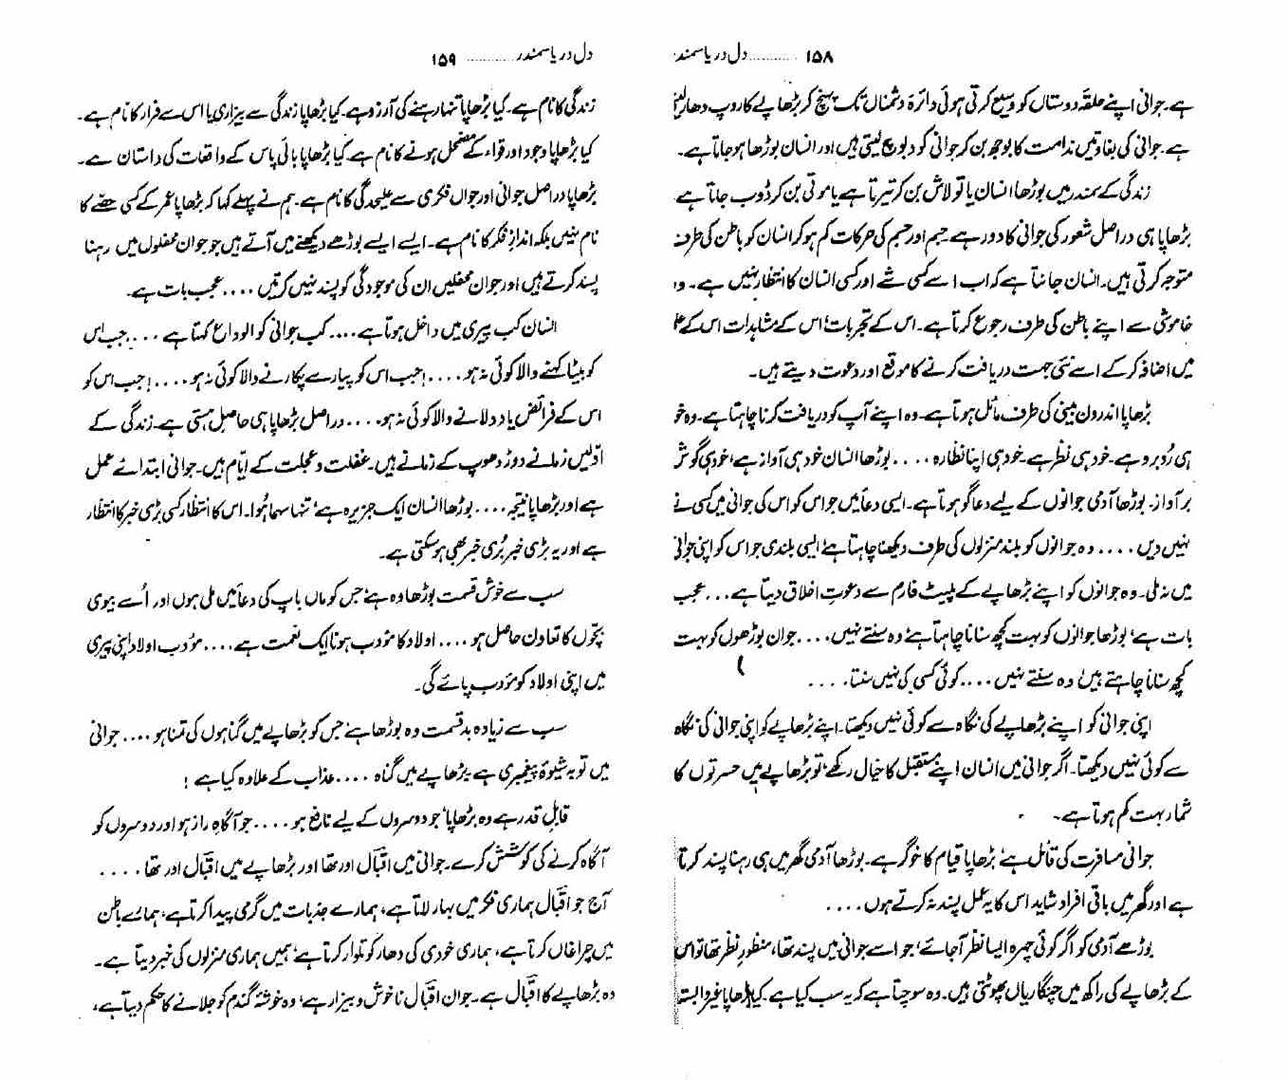 ۱۵۸ ........... دل دریا سمندر
ہے۔ جوانی اپنے حلقۂ دوستاں کو وسیع کرتی ہوئی دائرۂ دشمناں تک پہنچ کر بڑھاپے کا روپ دھار لیتی
ہے۔ جوانی کی بغاوتیں ندامت کا بوجھ بن کر جوانی کو دبوچ لیتی ہیں اور انسان بوڑھا ہو جاتا ہے۔
زندگی کے سمندر میں بوڑھا انسان یا تو لاش بن کر تیرتا ہے یا موتی بن کر ڈوب جاتا ہے
بڑھاپا ہی دراصل شعور کی جوانی کا دور ہے۔ جسم اور جسم کی حرکات کم ہو کر انسان کو باطن کی طرف
متوجہ کرتی ہیں۔ انسان جانتا ہے کہ اب اسے کسی شے اور کسی انسان کا انتظار نہیں ہے۔ وہ
خاموشی سے اپنے باطن کی طرف رجوع کرتا ہے۔ اس کے تجربات، اس کے مشاہدات اس کے
میں اضافہ کر کے اسے نئی جہت دریافت کرنے کا موقع اور دعوت دیتے ہیں۔
بڑھاپا اندرون بینی کی طرف مائل ہوتا ہے۔ وہ اپنے آپ کو دریافت کرنا چاہتا ہے۔ وہ خو
ہی رُوبرو ہے۔ خود ہی نظر ہے۔ خود ہی اپنا نظارہ .... بوڑھا انسان خود ہی آواز ہے، خود ہی گوش
بر آواز۔ بوڑھا آدمی جوانوں کے لیے دعا گو ہوتا ہے۔ ایسی دعائیں جو اس کو اس کی جوانی میں کسی نے
نہیں دیں .... وہ جوانوں کو بلند منزلوں کی طرف دیکھنا چاہتا ہے، ایسی بلندی جو اس کو اپنی جوانی
میں نہ ملی۔ وہ جوانوں کو اپنے بڑھاپے کے پلیٹ فارم سے دعوتِ اخلاق دیتا ہے... عجب
بات ہے، بوڑھا جوانوں کو بہت کچھ سنانا چاہتا ہے، وہ سنتے نہیں .... جوان بوڑھوں کو بہت
کچھ سنانا چاہتے ہیں، وہ سنتے نہیں .... کوئی کسی کی نہیں سنتا ....
اپنی جوانی کو اپنے بڑھاپے کی نگاہ سے کوئی نہیں دیکھتا۔ اپنے بڑھاپے کو اپنی جوانی کی نگاہ
سے کوئی نہیں دیکھتا۔ اگر جوانی میں انسان اپنے مستقبل کا خیال رکھے، تو بڑھاپے میں حسرتوں کا
شمار بہت کم ہوتا ہے۔
جوانی مسافرت کی قائل ہے، بڑھاپا قیام کا خوگر ہے۔ بوڑھا آدمی گھر میں ہی رہنا پسند کرتا
ہے اور گھر میں باقی افراد شاید اس کا یہ عمل پسند نہ کرتے ہوں ....
بوڑھے آدمی کو اگر کوئی چہرہ ایسا نظر آجائے، جو اسے جوانی میں پسند تھا، منظورِ نظر تھا تو اس
کے بڑھاپے کی راکھ میں چنگاریاں پھوٹتی ہیں۔ وہ سوچتا ہے کہ یہ سب کیا ہے۔ کیا بڑھاپا غیر وابستہ
دل دریا سمندر ........... ۱۵۹
زندگی کا نام ہے۔ کیا بڑھاپا تنہا رہنے کی آرزو ہے۔ کیا بڑھاپا زندگی سے بیزاری یا اس سے فرار کا نام ہے۔
کیا بڑھاپا وجود اور قواء کے مضمحل ہونے کا نام ہے کیا بڑھاپا بائی پاس کے واقعات کی داستان ہے۔
بڑھاپا دراصل جوانی اور جواں فکری سے علیحدگی کا نام ہے۔ ہم نے پہلے کہا کہ بڑھاپا عمر کے کسی حصّے کا
نام نہیں بلکہ اندازِ فکر کا نام ہے۔ ایسے ایسے بوڑھے دیکھنے میں آتے ہیں جو جوان محفلوں میں رہنا
پسند کرتے ہیں اور جوان محفلیں ان کی موجودگی کو پسند نہیں کرتیں .... عجب بات ہے۔
انسان کب پیری میں داخل ہوتا ہے .... کب جوانی کو الوداع کہتا ہے .... جب اس
کو بیٹا کہنے والا کوئی نہ ہو ....! جب اس کو پیار سے پکارنے والا کوئی نہ ہو ....! جب اس کو
اس کے فرائض یاد دلانے والا کوئی نہ ہو .... دراصل بڑھاپا ہی حاصلِ ہستی ہے۔ زندگی کے
اوّلیں زمانے دوڑ دھوپ کے زمانے ہیں۔ غفلت و عجلت کے ایّام ہیں۔ جوانی ابتدائے عمل
ہے اور بڑھاپا نتیجہ .... بوڑھا انسان ایک جزیرہ ہے، تنہا سہما ہُوا۔ اس کا انتظار کسی بڑی خبر کا انتظار
ہے اور یہ بڑی خبر بُری خبر بھی ہو سکتی ہے۔
سب سے خوش قسمت بوڑھا وہ ہے، جس کو ماں باپ کی دعائیں ملی ہوں اور اُسے بیوی
بچّوں کا تعاون حاصل ہو .... اولاد کا مؤدب ہونا ایک نعمت ہے .... مؤدب اولاد اپنی پیری
میں اپنی اولاد کو مؤدب پائے گی۔
سب سے زیادہ بدقسمت وہ بوڑھا ہے، جس کو بڑھاپے میں گناہوں کی تمنا ہو .... جوانی
میں توبہ شیوۂ پیغمبری ہے۔ بڑھاپے میں گناہ .... عذاب کے علاوہ کیا ہے!
قابلِ قدر ہے وہ بڑھاپا، جو دوسروں کے لیے نافع ہو .... جو آگاہِ راز ہو اور دوسروں کو
آگاہ کرنے کی کوشش کرے۔ جوانی میں اقبال اور تھا اور بڑھاپے میں اقبال اور تھا ....
آج جو اقبال ہماری فکر میں بہار لاتا ہے، ہمارے جذبات میں گرمی پیدا کرتا ہے، ہمارے باطن
میں چراغاں کرتا ہے، ہماری خودی کی دھار کو تلوار کرتا ہے، ہمیں ہماری منزلوں کی خبر دیتا ہے۔
وہ بڑھاپے کا اقبال ہے۔ جوان اقبال ناخوش و بیزار ہے، وہ خوشۂ گندم کو جلانے کا حکم دیتا ہے،